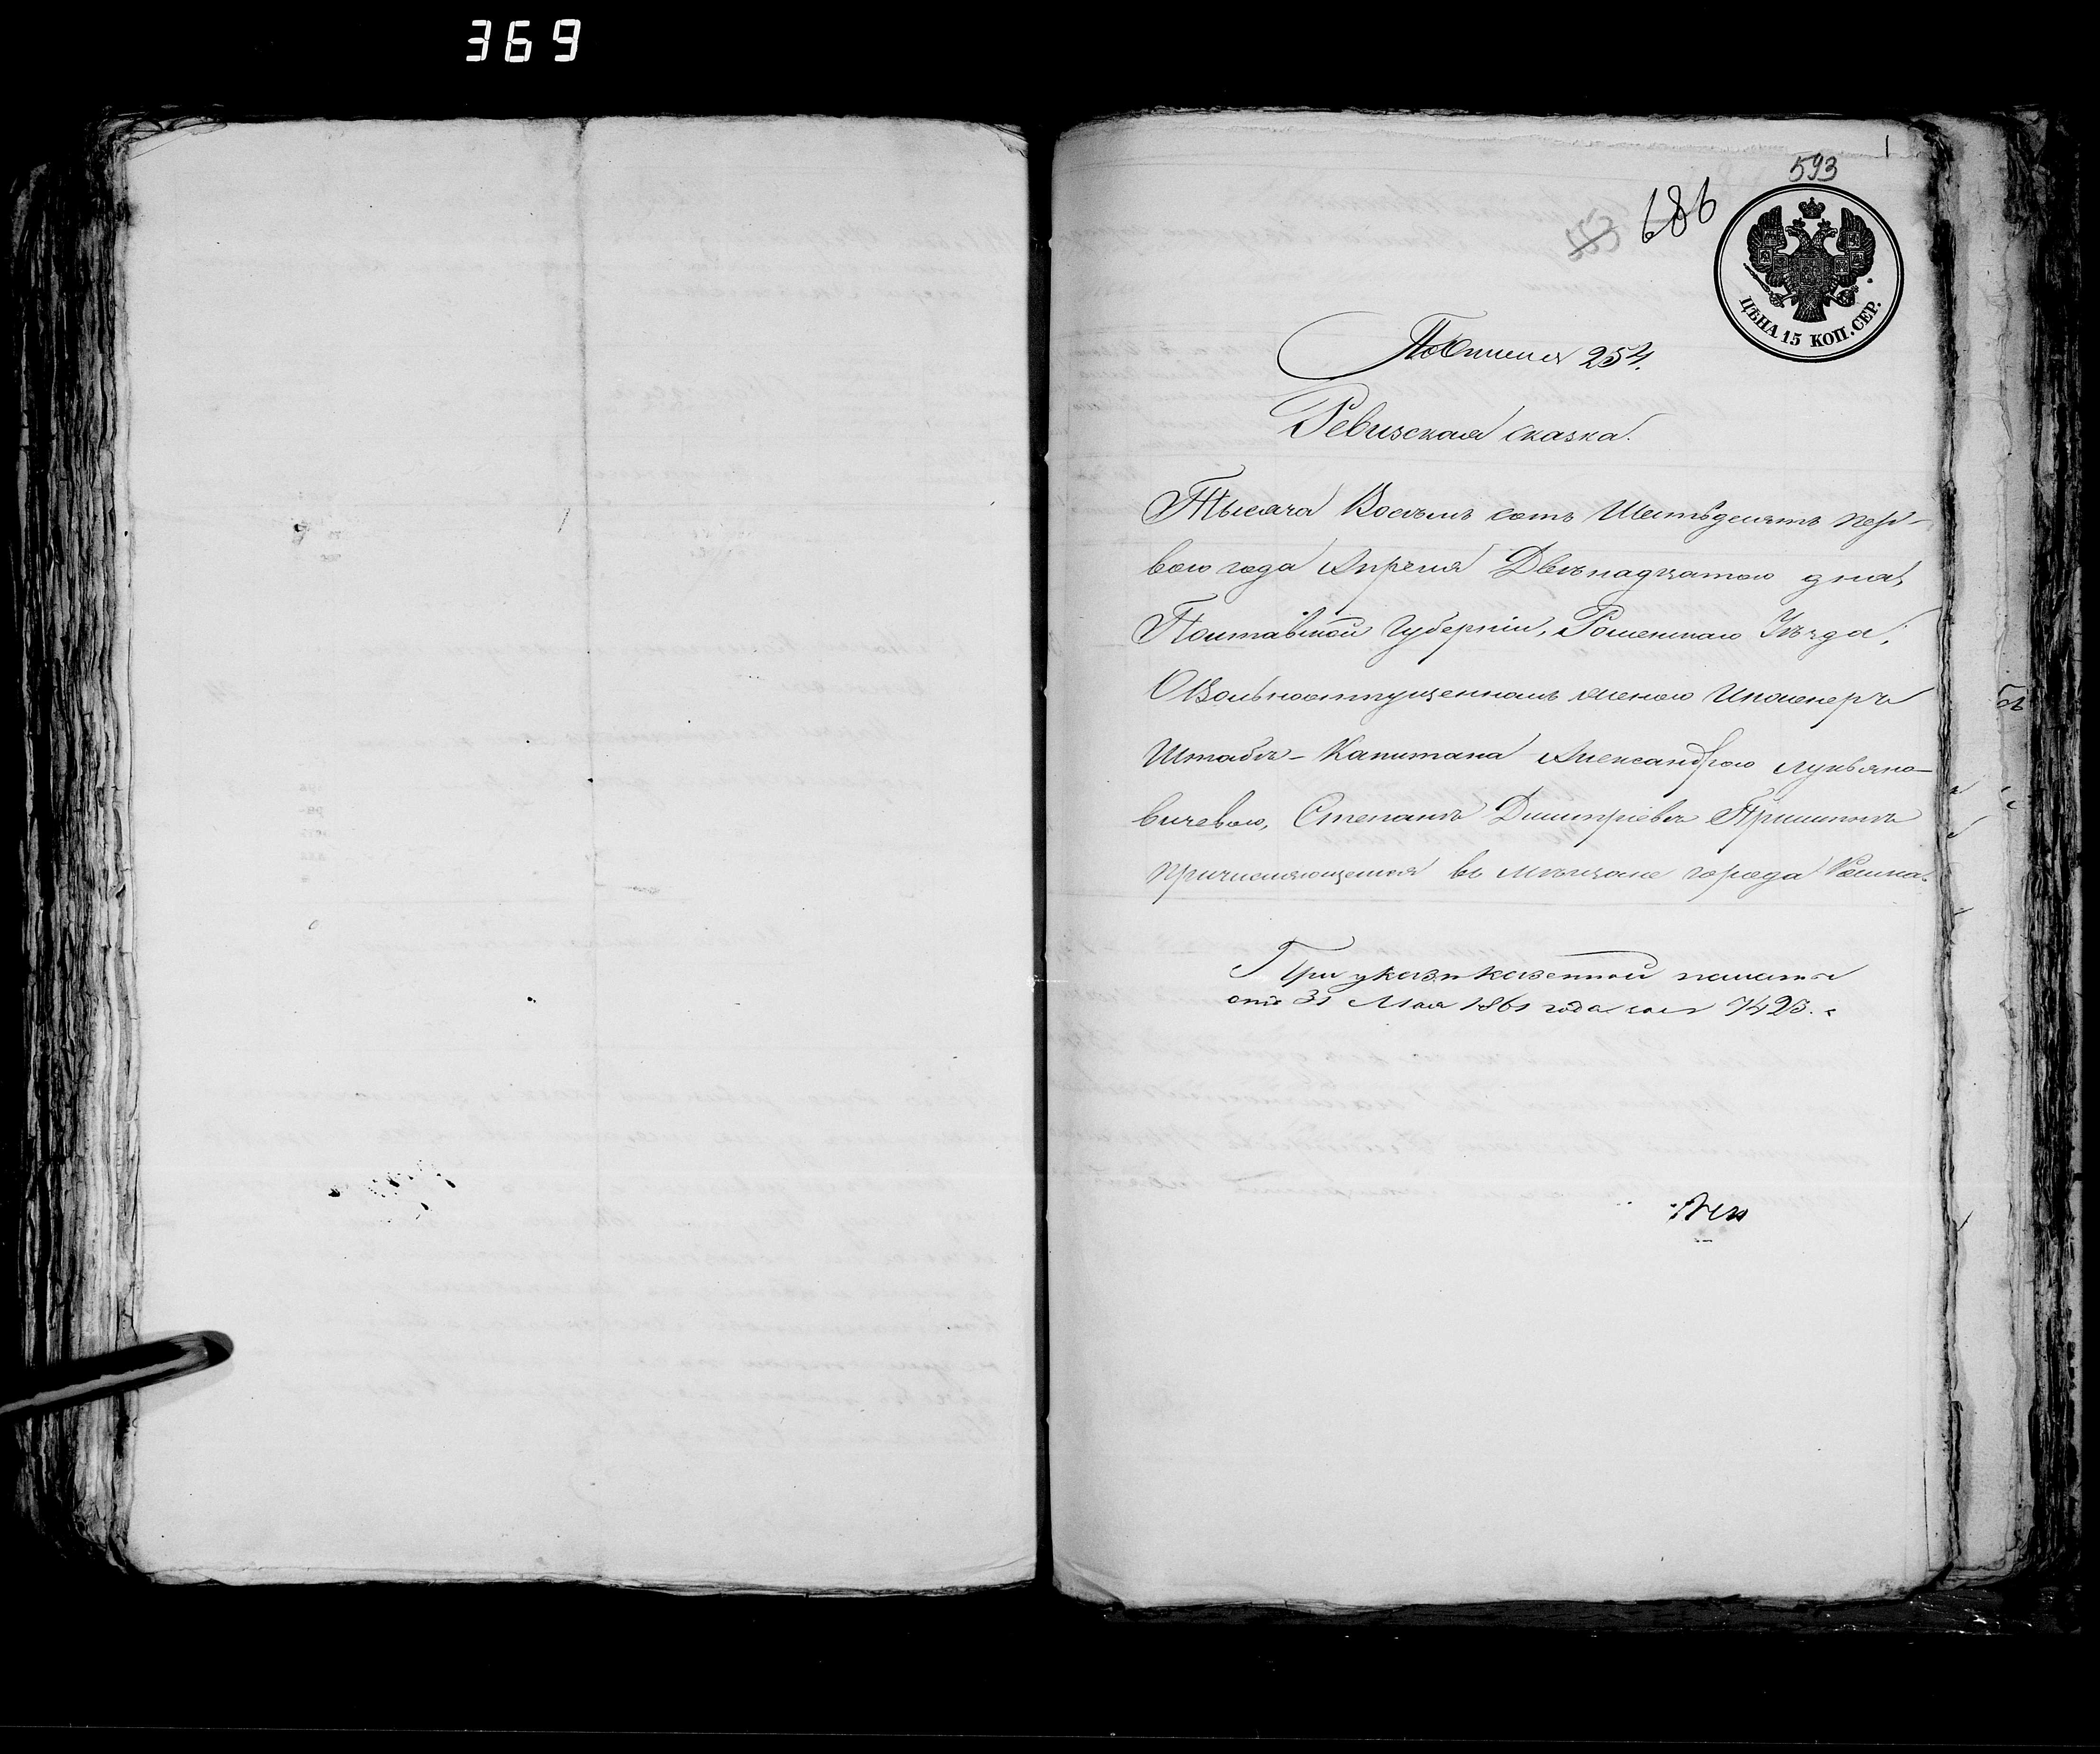 369
1
593
553
686
ЦѢНА 15 КОП. СЕР.
По Описи 254.
Ревизская сказка.
Тысяча Восемь сотъ Шестьдесятъ пер-
ваго года Апреля Двѣнадцатаго дня,
Полтавской Губерніи, Роменскаго Уѣзда,
О Вольноотпущенномъ женою Инженеръ
Штабсъ-Капитана Александрою Лукьяно-
вичевою, Степанъ Димитріевъ
причисляющемся въ мѣщане города Ромна.
При указѣ казенной палаты
отъ 31 Мая 1861 года за № 7423.